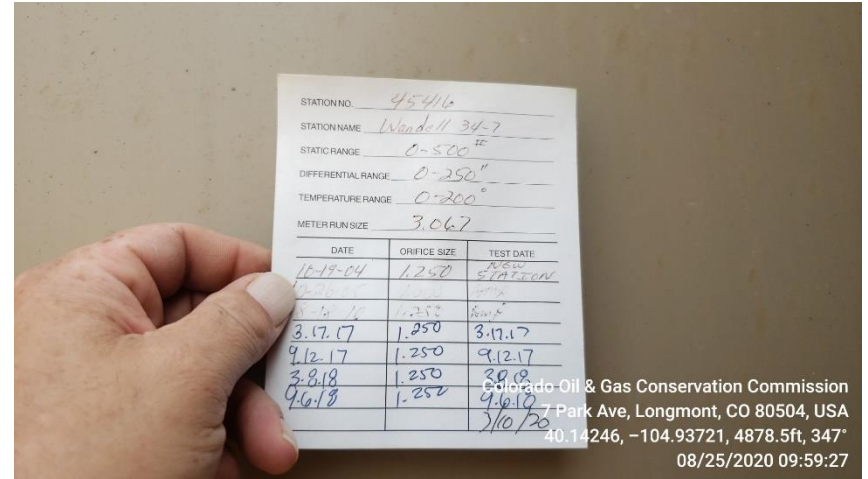 STATION NO. 45416
STATION NAME Wandell 34-7
STATIC RANGE 0-500#
DIFFERENTIAL RANGE 0-250"
TEMPERATURE RANGE 0-200°
METER RUN SIZE 3.067
DATE ORIFICE SIZE TEST DATE
10-19-04 1.250 NEW STATION
3.17.17 1.250 3.17.17
9.12.17 1.250 9.12.17
3.8.18 1.250
9.6.18 1.252 9.6.18
3/10/20
Colorado Oil & Gas Conservation Commission
7 Park Ave, Longmont, CO 80504, USA
40.14246, −104.93721, 4878.5ft, 347°
08/25/2020 09:59:27